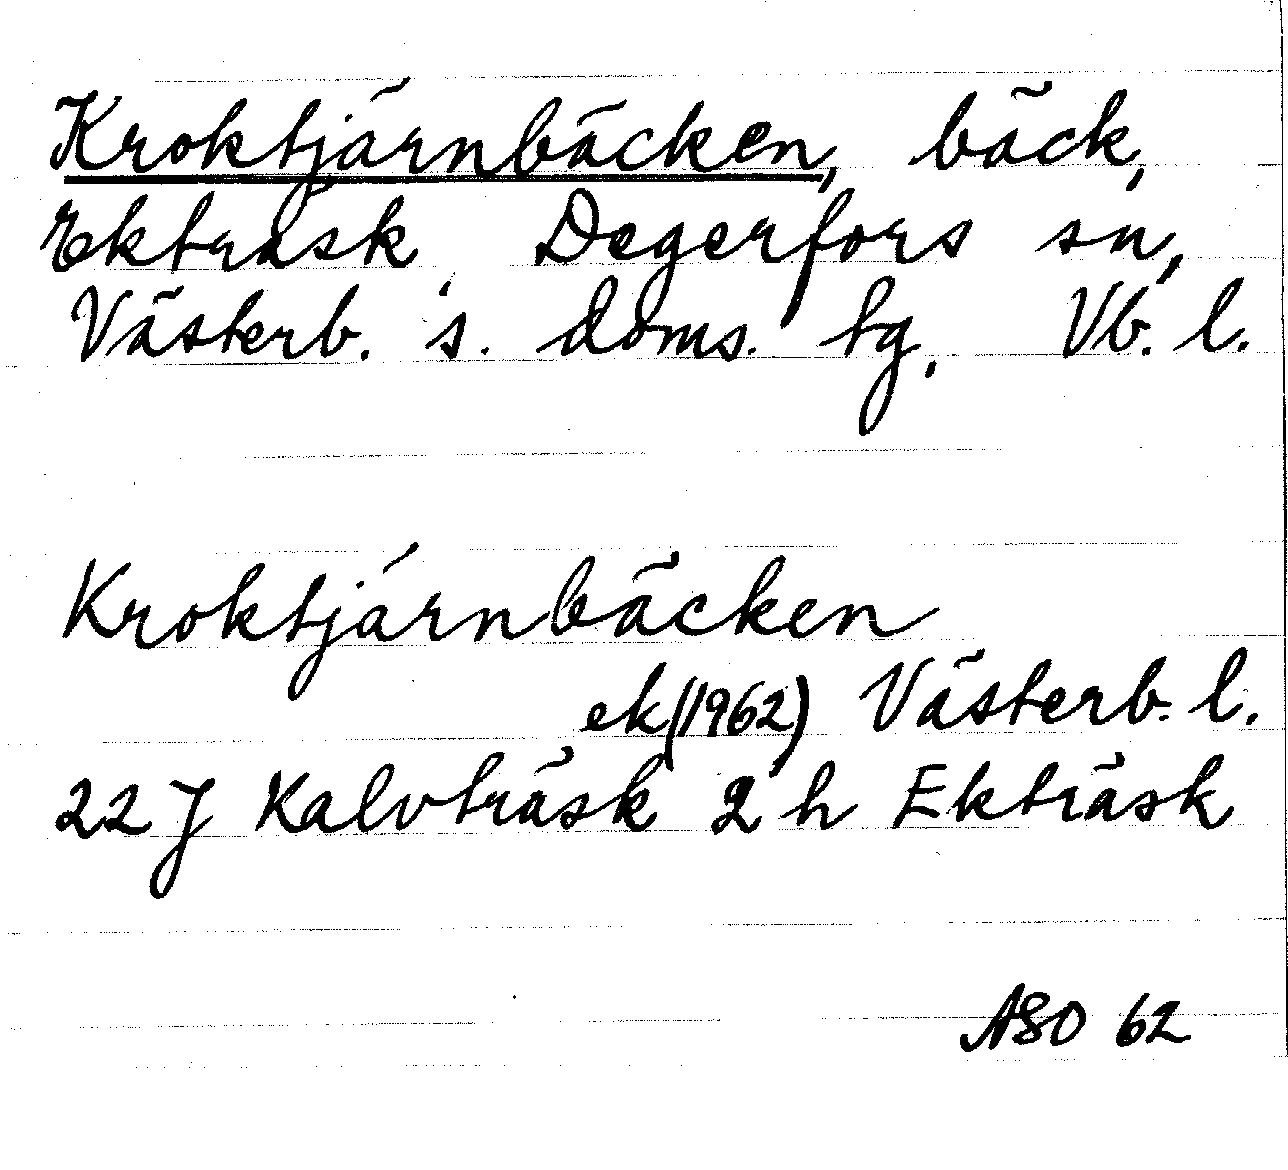 Kroktjärnbäcken, bäck,
Ekträsk, Degerfors sn,
Västerb. s. doms. tg. Vb. l.
Kroktjärnbäcken
ek (1962) Västerb. l.
22 J Kalvträsk 2 h Ekträsk
ASO 62